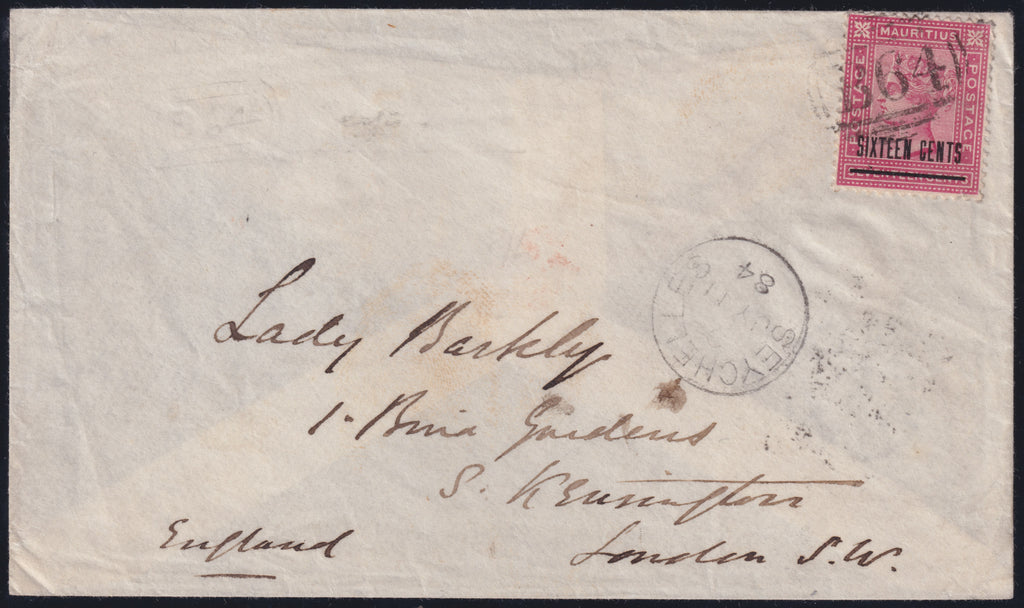 MAURITIUS
POSTAGE
POSTAGE
B64
SIXTEEN CENTS
SEYCHELLES
84
Lady Barkly
1. Bina Gardens
S. Kensington
London S.W.
England